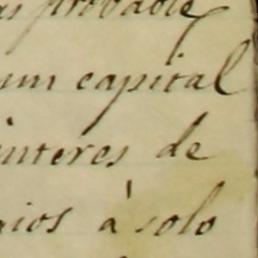 probable
um capital
interes de
à solo